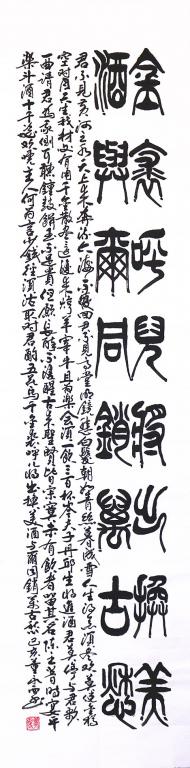 金裘呼兒將出換美
酒與爾同銷萬古愁
君不見黃河之水天上來奔流到海不復回君不見高堂明鏡悲白髮朝如青絲暮成雪人生得意須盡歡莫使金樽
空對月天生我材必有用千金散盡還復來烹羊宰牛且為樂會須一飲三百杯岑夫子丹丘生將進酒君莫停與君歌
一曲請君為我側耳聽鐘鼓饌玉不足貴但願長醉不復醒古來聖賢皆寂寞惟有飲者留其名陳王昔時宴平
樂斗酒十千恣歡謔主人何為言少錢徑須沽取對君酌五花馬千金裘呼兒將出換美酒與爾同銷萬古愁己亥